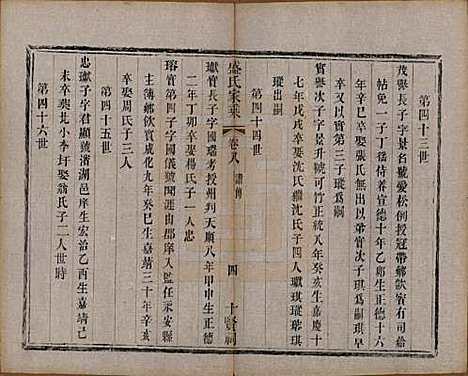 第四十三世
茂譽長子字景名號愛松例授冠帶鄉飲賓有司給
帖免一子丁徭侍養宣德十年乙卯生正德十六
年辛巳卒娶張氏無出以弟實次子琪為嗣琪早
卒又以實第三子瑽為嗣
實譽次子字克可號竹正統八年癸亥生嘉慶十
七年戊戌卒娶沈氏繼沈氏子四人瓛琪瑽
瑽出嗣
第四十四世
瓛實長子字國瑞考授州判天順八年甲申生正德
二年丁卯卒娶楊氏子一人忠
瑢實第四子字國儀號南山由郡監任永安縣
主簿鄉飲賓成化九年癸巳生嘉靖三十年辛亥
卒娶周氏子三人
第四十五世
忠瓛子字君顯號濱湖邑庠生弘治乙酉生嘉靖己
未卒葬北小李圩娶翁氏子二人世時
第四十六世
盛氏家乘
卷八
譜傳
四
十賢祠